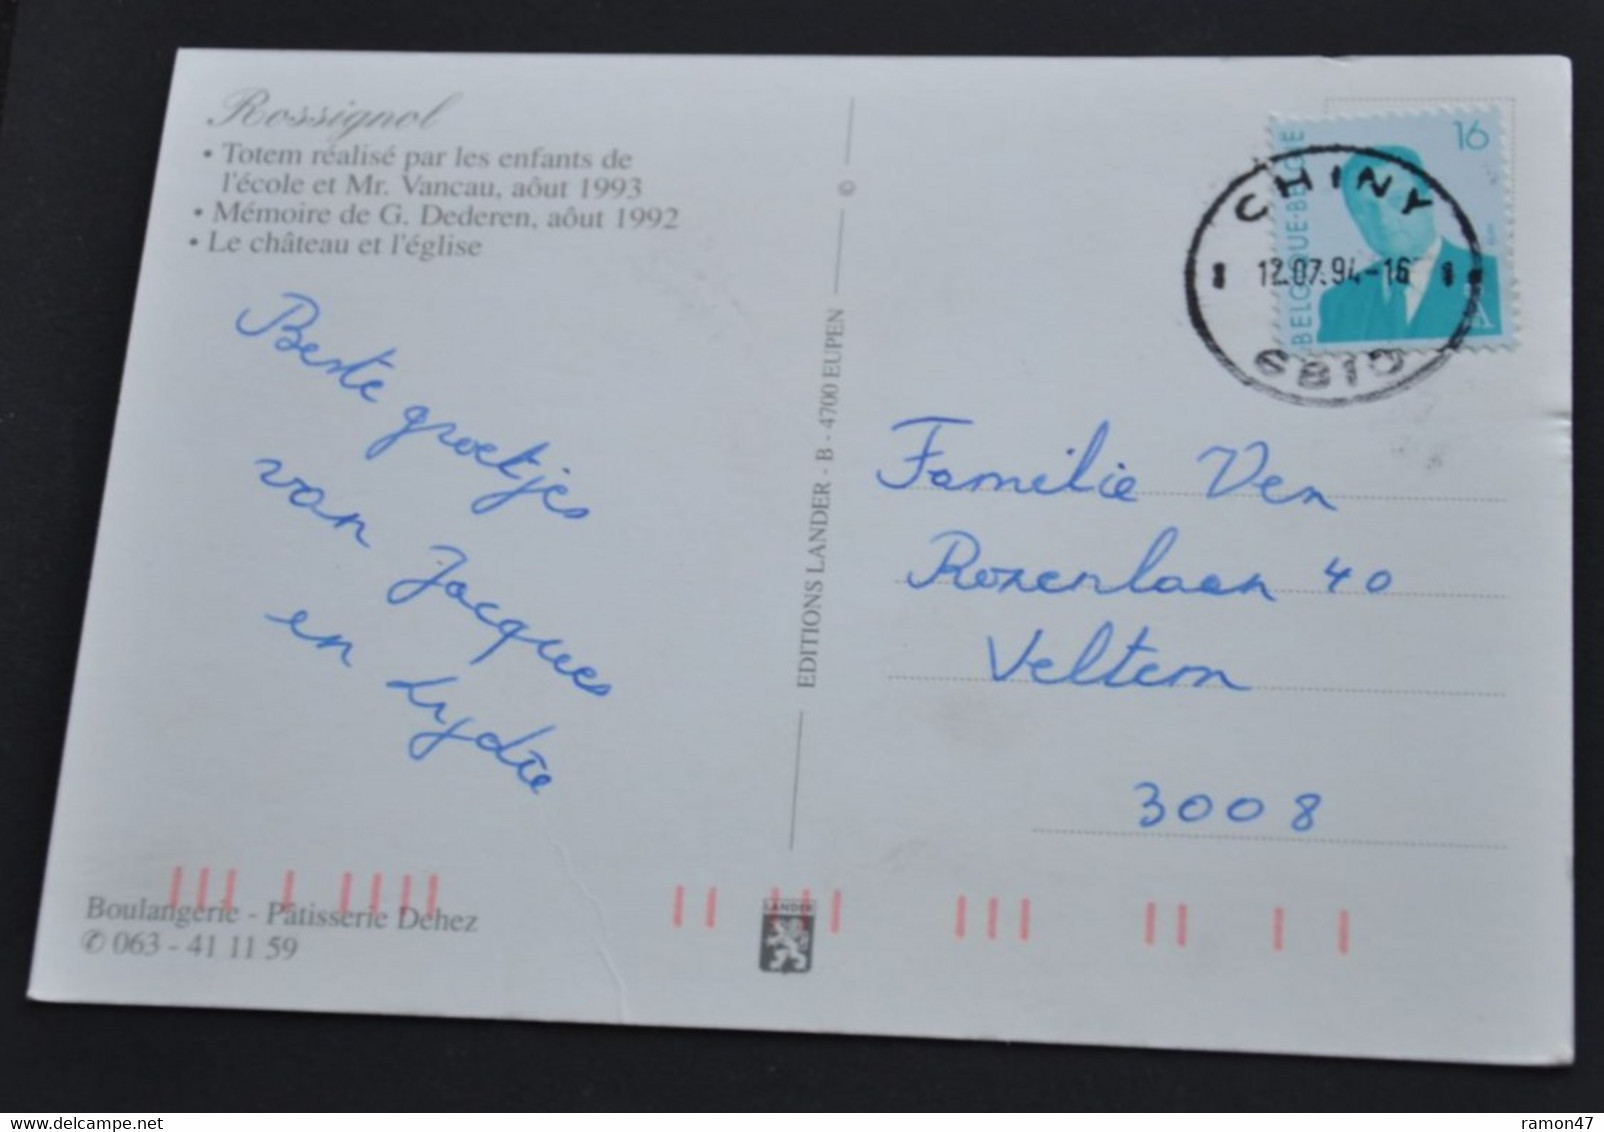 Rossignol
• Totem réalisé par les enfants de
l'école et Mr. Vancau, aôut 1993
• Mémoire de G. Dederen, aôut 1992
• Le château et l'église
Beste groetjes
van Jacques
en Lydie
Boulangerie - Pâtisserie Dehez
✆ 063 - 41 11 59
EDITIONS LANDER - B - 4700 EUPEN
©
LANDER
16
BELGIQUE·BELGIE
A
CHINY
12.07.94-16
6810
Familie Ven
Rozenlaan 40
Veltem
3008
delcampe.net
ramon47